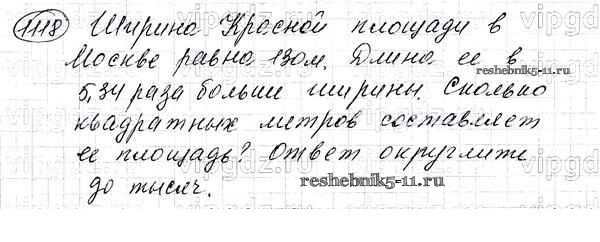 1118 Ширина Красной площади в
Москве равна 130м. Длина ее в
5,34 раза больше ширины. Сколько
квадратных метров составляет
ее площадь? Ответ округлите
до тысяч.
reshebnik5-11.ru
reshebnik5-11.ru